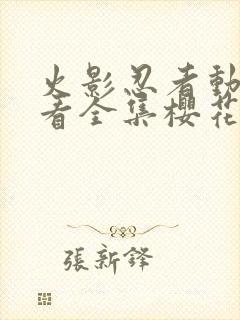 火影忍者動
看全集櫻花
張新鋒